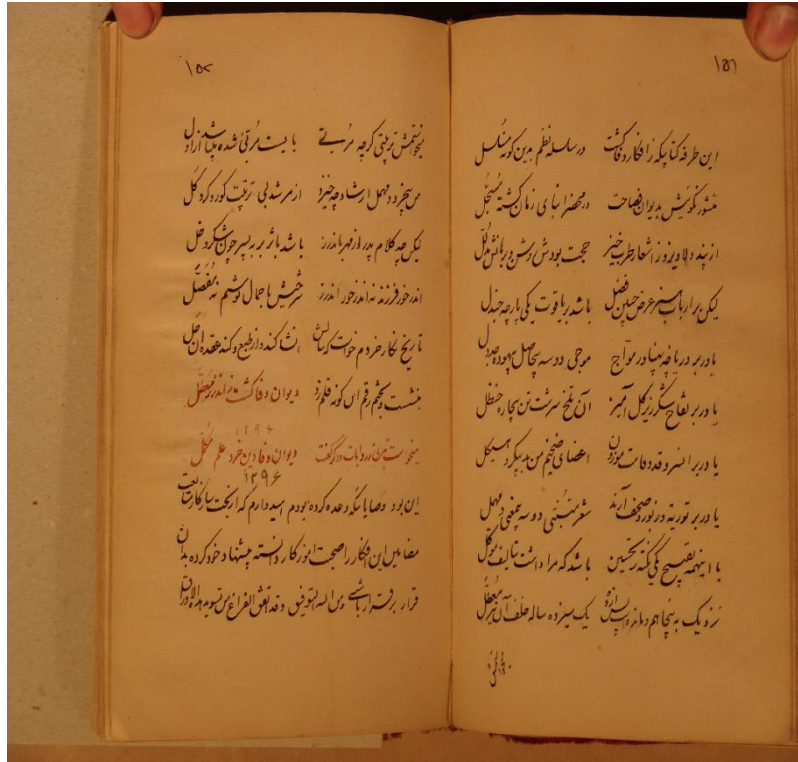 ۱۵۶
این طرفه کتابیکه ز افکار وفا گشت در سلسله نظم بدین گونه مسلسل
منشور نکوئیش بدیوان فصاحت در محضر ابنای زمان گشته مسجل
از پند دلاویز و ز اشعار طرب خیز حجت بودش روشن و برهانش مدلل
لیکن بر ارباب هنر عرض چنین فضل باشد بر یاقوت یکی پارچه جندل
یا در بر دریا چه پهناور مواج موجی دو سه بیحاصل بیهوده جدول
یا در بر تفاح شکرریز گل آمیز آن تلخ سرشت تن بیچاره حنظل
یا در بر آنسرو قد و قامت موزون اعضای ضخیم من بد پیکر هیکل
یا در بر توریة و زبور و صحف آرند شعر متنبی دو سه بیمعنی و مهمل
با اینهمه تقبیح یکی نکته تحسین باشد که مرا داشت بتألیف موکل
نزدیک به پنجاهم و مانده پس از یک سیزده ساله خلف آن معطل
۱۵۷
میخواستمش تربیتی گرچه مربی بایست مربی شده
من بیخرد و مهمل ارشاد چه خیزد از مرشد بی تربیت کور و کر و کل
لیکن چه کلام پدر از مهر باندرز باشد باثر بر پسر چون شکر و خل
اندر خور فرزند نه اندر خور اندرز باجمال نوشتم نه مفصل
تاریخ نگار خردم خواست که سالش انشا کند از طبع و کند عقده آن حل
بنشست و بگفتم رقم این گونه قلم زد دیوان وفا گشت ز اندرز مفصل
۱۲۹۶
میخواست دگر گفت دیوان وفا دین خرد علم مکمل
۱۲۹۶
این بود وصایائیکه وعده کرده بودم امیدوارم که آن نکت بیادگار
مضامین این افکار را صحبت آموزگار دانسته پیشنهاد خود کرده بدان
قرار برقرار باشی و من الله التوفیق و قد اتفق الفراغ من تسوید هذه الاوراق